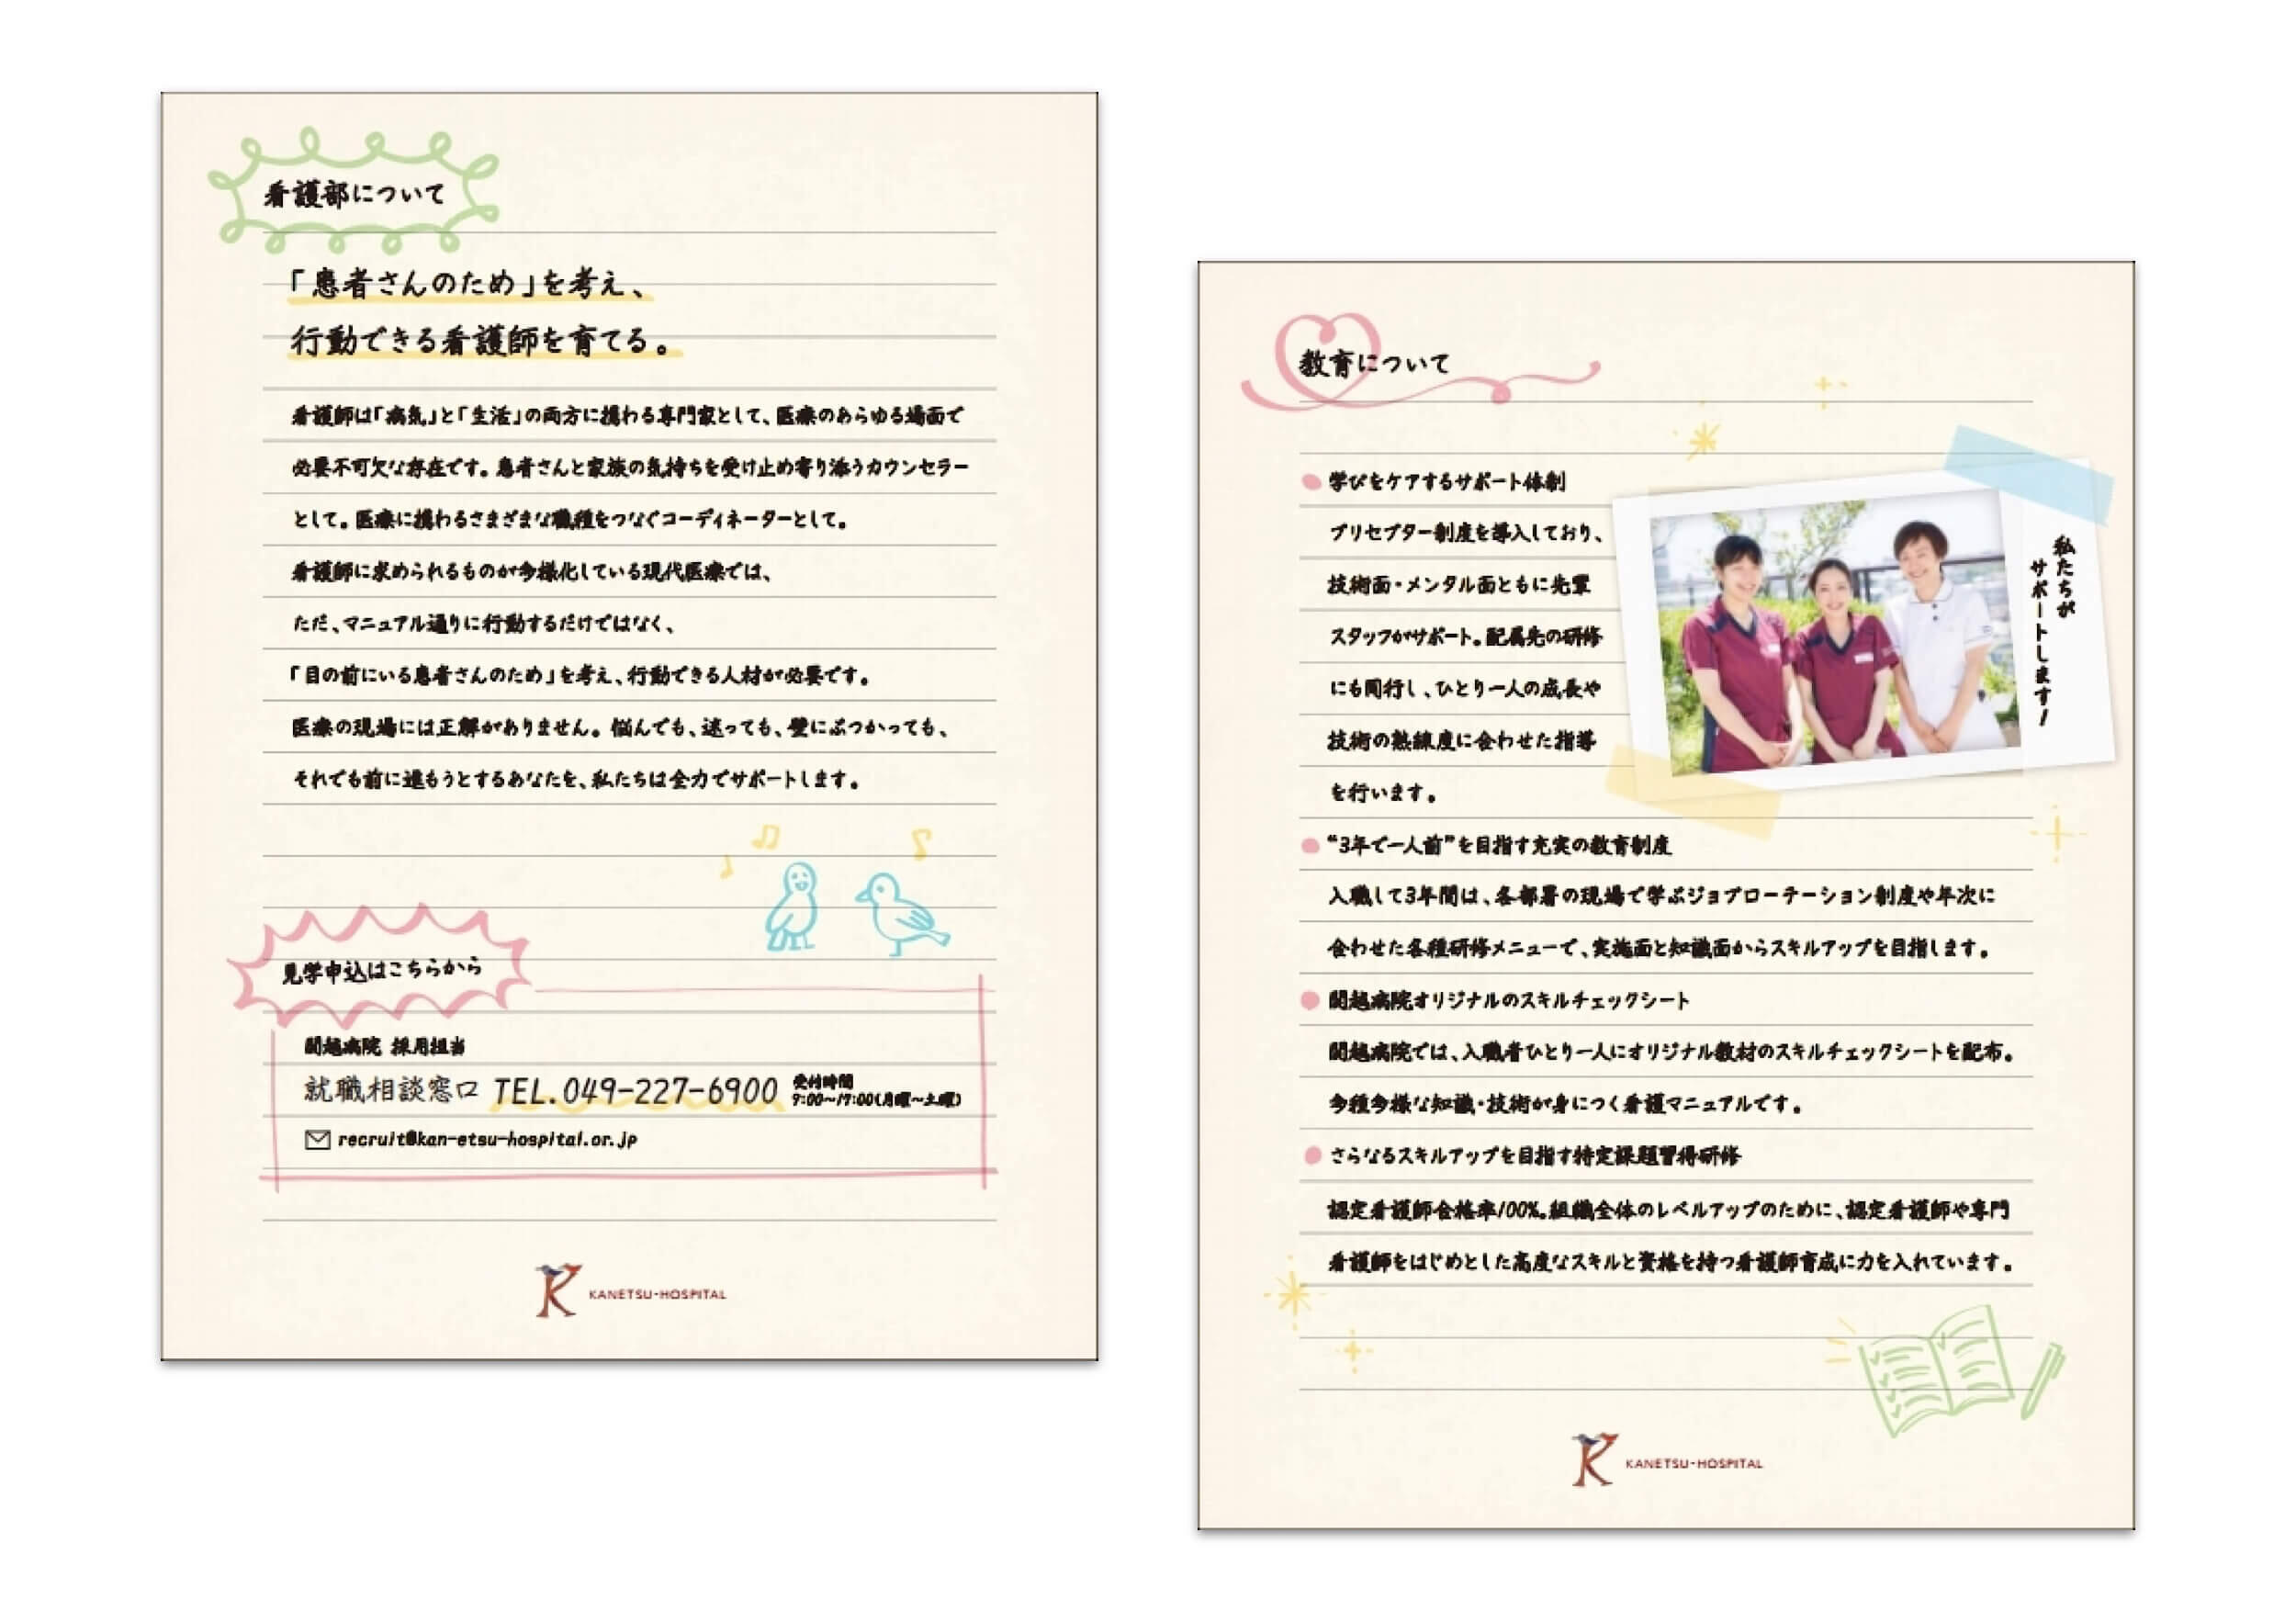 看護部について
「患者さんのため」を考え、
行動できる看護師を育てる。
看護師は「病気」と「生活」の両方に携わる専門家として、医療のあらゆる場面で
必要不可欠な存在です。患者さんと家族の気持ちを受け止め寄り添うカウンセラー
として。医療に携わるさまざまな職種をつなぐコーディネーターとして。
看護師に求められるものが多様化している現代医療では、
ただ、マニュアル通りに行動するだけではなく、
「目の前にいる患者さんのため」を考え、行動できる人材が必要です。
医療の現場には正解がありません。悩んでも、迷っても、壁にぶつかっても、
それでも前に進もうとするあなたを、私たちは全力でサポートします。
見学申込はこちらから
関越病院 採用担当
就職相談窓口 TEL.049-227-6900 受付時間
9:00~17:00(月曜~土曜)
recruit@kan-etsu-hospital.or.jp
K KANETSU-HOSPITAL
教育について
学びをケアするサポート体制
プリセプター制度を導入しており、
技術面・メンタル面ともに先輩
スタッフがサポート。配属先の研修
にも同行し、ひとり一人の成長や
技術の熟練度に合わせた指導
を行います。
私たちが
サポートします!
“3年で一人前”を目指す充実の教育制度
入職して3年間は、各部署の現場で学ぶジョブローテーション制度や年次に
合わせた各種研修メニューで、実施面と知識面からスキルアップを目指します。
関越病院オリジナルのスキルチェックシート
関越病院では、入職者ひとり一人にオリジナル教材のスキルチェックシートを配布。
多種多様な知識・技術が身につく看護マニュアルです。
さらなるスキルアップを目指す特定課題習得研修
認定看護師合格率100%。組織全体のレベルアップのために、認定看護師や専門
看護師をはじめとした高度なスキルと資格を持つ看護師育成に力を入れています。
K KANETSU-HOSPITAL